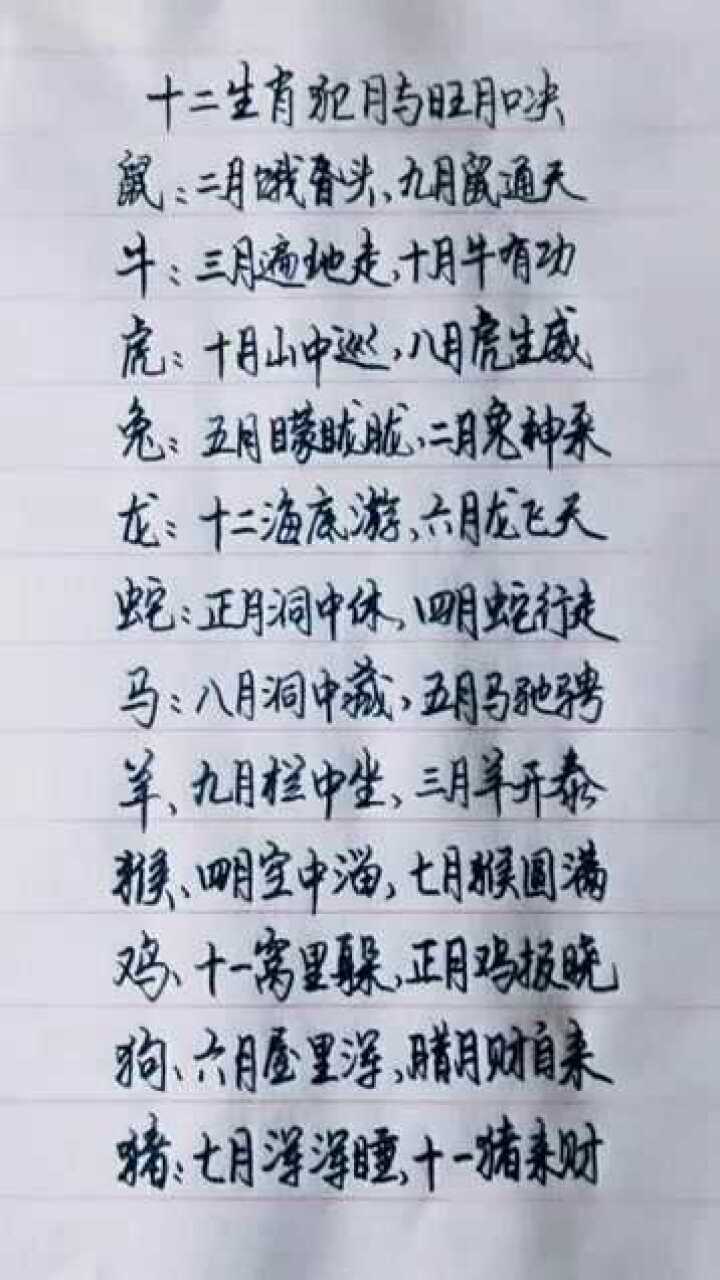 十二生肖犯月与旺月口决
鼠：二月饿昏头、九月鼠通天
牛：三月遍地走，十月牛有功
虎：十月山中巡，八月虎生威
兔：五月曚眬胧，二月兔神采
龙：十二海底游，六月龙飞天
蛇：正月洞中休，四月蛇行走
马：八月洞中藏，五月马驰骋
羊、九月栏中坐、三月羊开泰
猴、四月空中溜，七月猴圆满
鸡、十一窝里躲，正月鸡报晓
狗、六月屋里浑，腊月财自来
猪：七月浑浑睡，十一猪来财